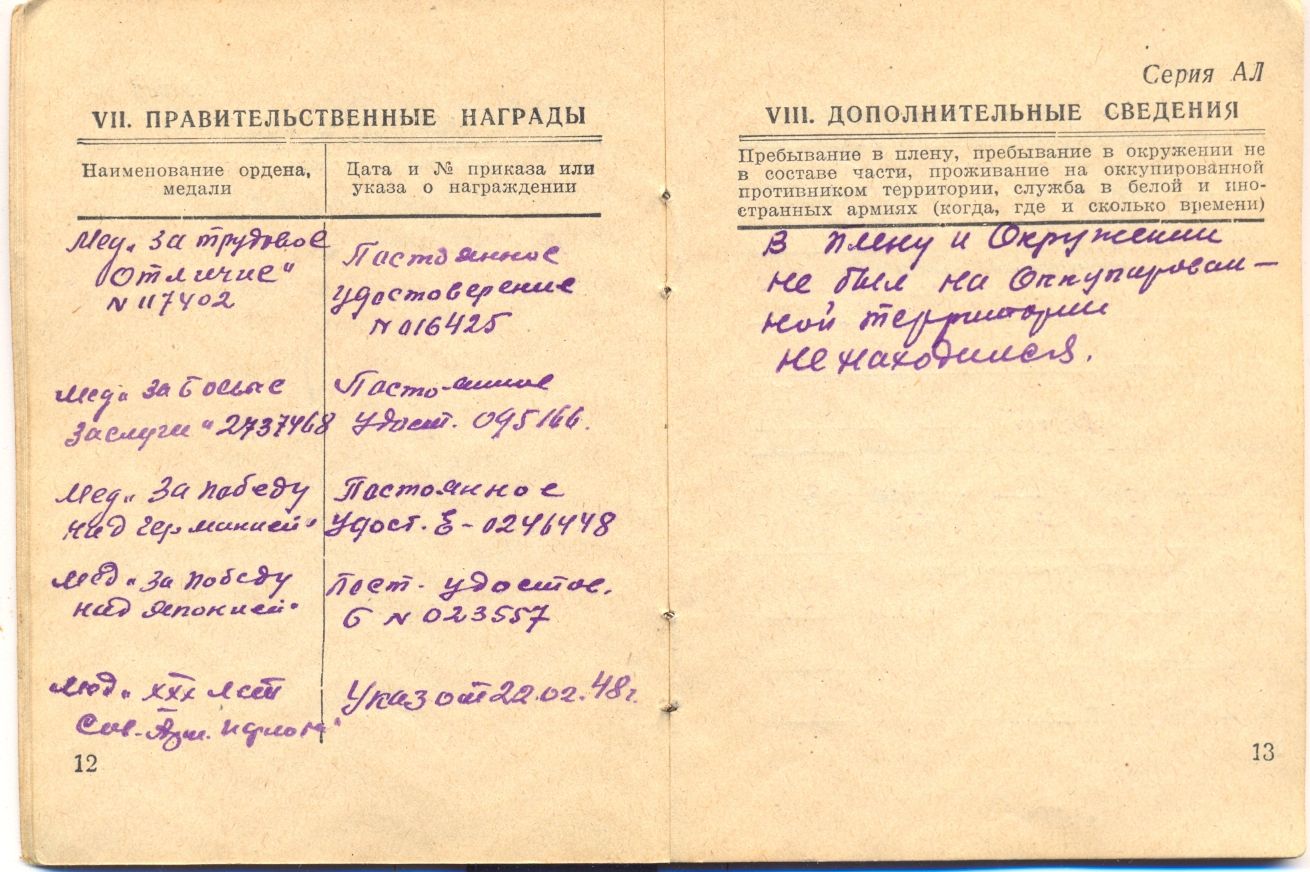 VII. ПРАВИТЕЛЬСТВЕННЫЕ НАГРАДЫ
Наименование ордена,
медали
Дата и № приказа или
указа о награждении
Мед„ За трудовое
Отличие"
N 117402
Постоянное
удостоверение
N 016425
Мед„ За Боевые
Заслуги" 2737468
Постоянное
Удост. 095166.
Мед„ За победу
над германией"
Постоянное
Удост. Е-0246448
Мед„ За победу
над японией"
Пост. удостов.
Б N 023557
Мед„ XXX лет
Сов. Арм. и флота"
Указ от 22.02.48г.
12
Серия АЛ
VIII. ДОПОЛНИТЕЛЬНЫЕ СВЕДЕНИЯ
Пребывание в плену, пребывание в окружении не
в составе части, проживание на оккупированной
противником территории, служба в белой и ино-
странных армиях (когда, где и сколько времени)
В плену и Окружении
не был на Оккупирован-
ной территории
не находился.
13